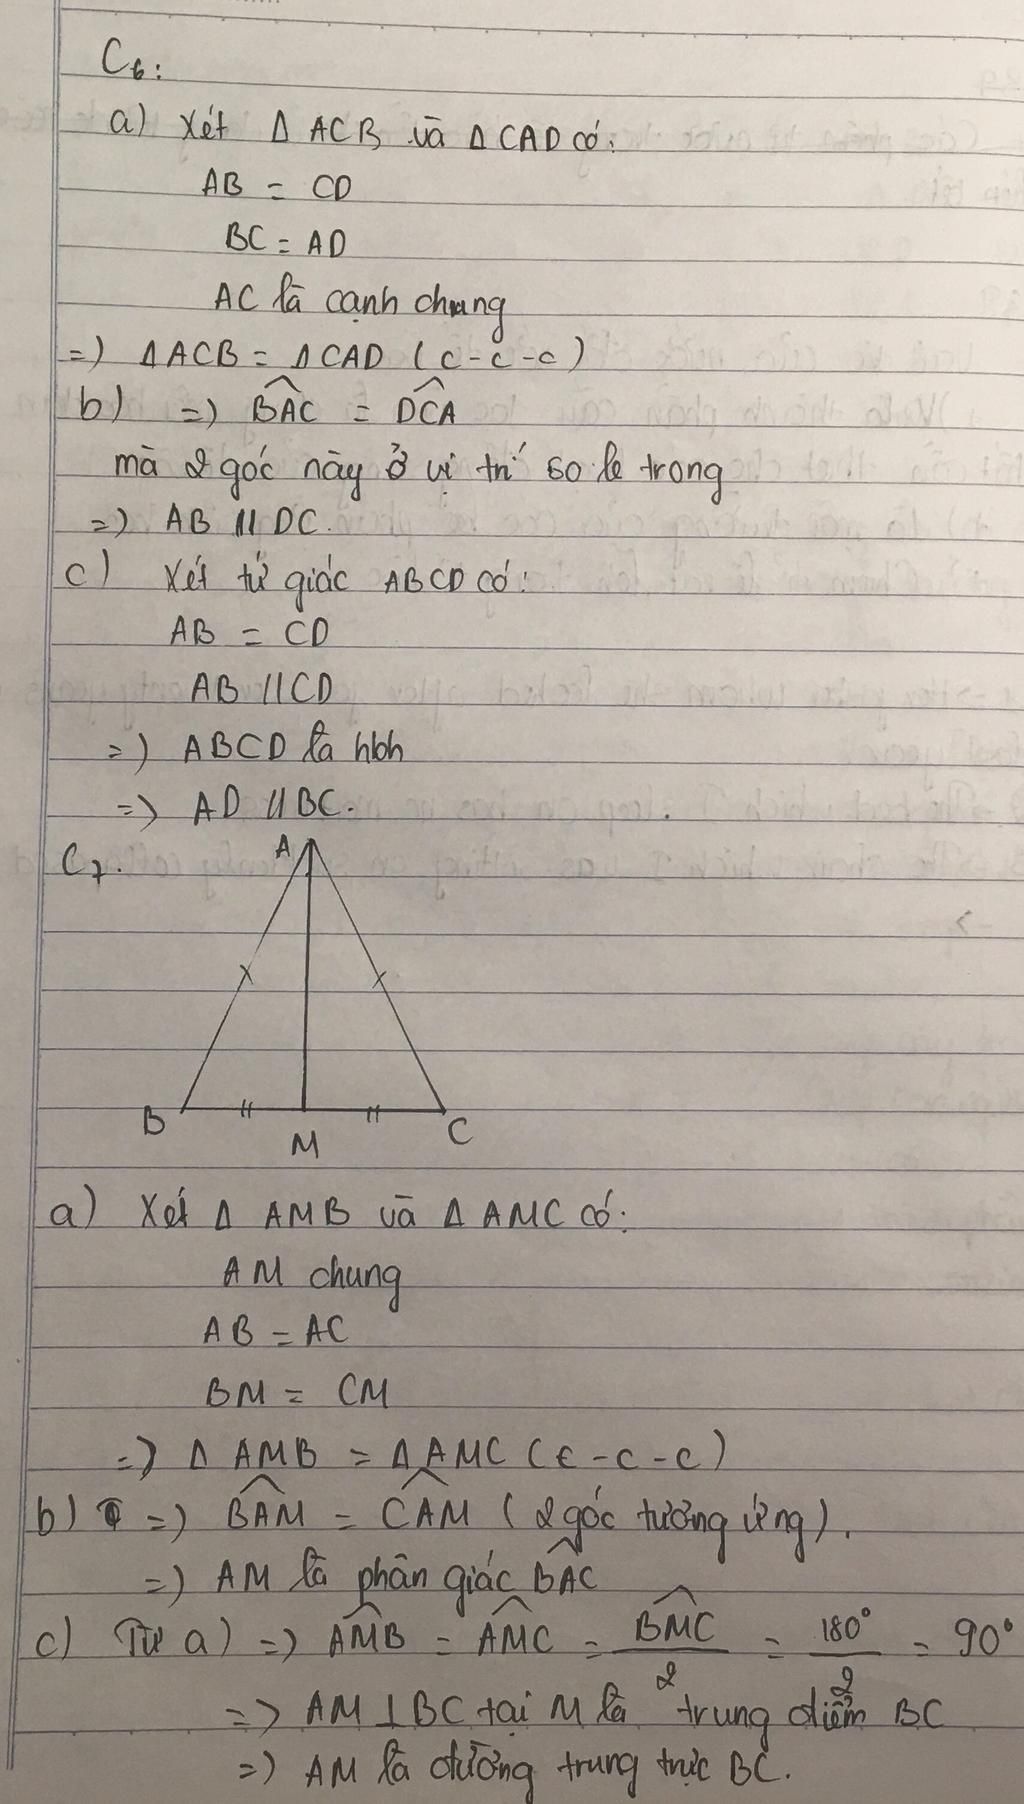 C6:
a) Xét Δ ACB và Δ CAD có:
AB = CD
BC = AD
AC là cạnh chung
=) Δ ACB = Δ CAD ( c - c - c )
b) =) BAC = DCA
mà 2 góc này ở vị trí so le trong
=) AB // DC.
c) Xét tứ giác ABCD có:
AB = CD
AB // CD
=) ABCD là hbh
=) AD // BC.
C7.
A
B
M
C
a) Xét Δ AMB và Δ AMC có:
AM chung
AB = AC
BM = CM
=) Δ AMB = Δ AMC ( c - c - c )
b) =) BAM = CAM ( 2 góc tương ứng ).
=) AM là phân giác BAC
c) Từ a) =) AMB = AMC = BMC/2 = 180°/2 = 90°
=) AM ⊥ BC tại M là trung điểm BC
=) AM là đường trung trực BC.